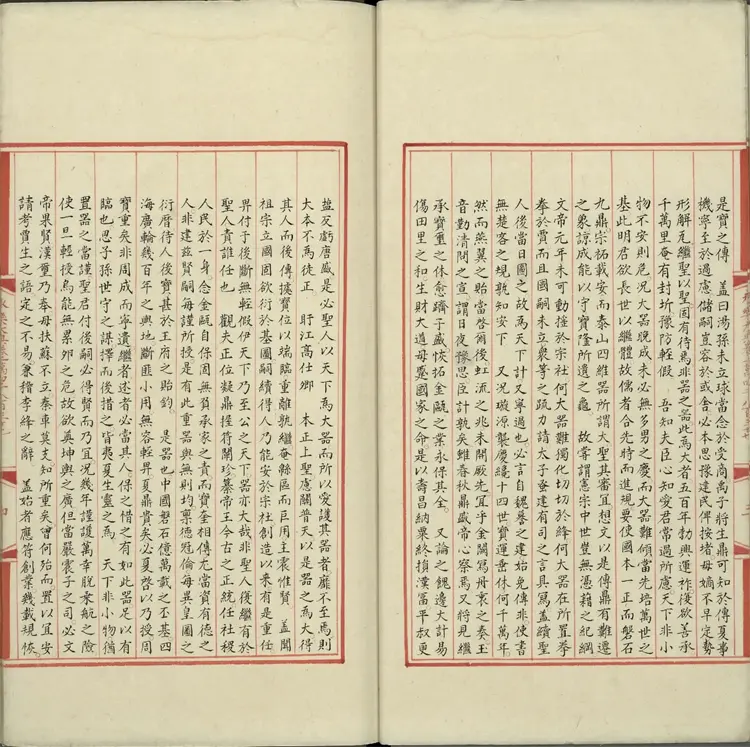 是寶之傳　蓋曰湯孫未立球當念於受商禹子將生鼎可知於傳夏事
機寧至於過慮儲嗣豈容於或舍必本思豫建民俾按堵毋嫡不早定勢
形解危繼聖以聖固有待焉非器之器此為大者五百年勃興運祚後欲善承
千萬里奄有封圻豫防輕假　吾知夫臣心知愛君常過所慮天下非小
物不安則危況大器晚成未必無多男之慶而大器難傾當先培萬世之
基此明君欲長世以繼體故儒者合先特而進規要使國本一正而磐石
九鼎宗祏載安而泰山四維器所謂大聖其審宜想文以是傳鼎有難遷
之象諒成能以守寶隆所遺之龜　故嘗謂憲宗中世豈無憑藉之紀綱
文帝元年未可動搖於宗社何大器難獨化切切於絳何大器在所置拳
拳於賈而且國嗣未立衆等之疏力請太子蚤建有司之言具寫蓋續聖
人後當日圖之故為天下計又寧過也必言自魏暮之建始免傳非使書
無楚客之規孰知安下　又況璇源襲慶綿十四世寶運垂休何千萬年
然而燕翼之貽當啓爾後虹流之兆未開厥先宜乎金闕寫丹衷之奏玉
音勤清閒之宣謂日夜豫思臣計孰矣雖春秋鼎盛帝心察焉又將見繼
承寶重之休愈躋于盛恢拓金甌之業永保其金　又論之餽邊大計易
傷田里之和生財大道毋蹙國家之命是以壽昌納粟終損漢富平叔更
鹽反虧唐盛是必聖人以天下為大器而所以愛護其器者靡不至焉則
大本不爲徒正　盱江高仕卿　本正上聖慮關普天以是器之為大得
其人而後傳據寶位以端臨重離孰繼奄縣區而巨用主震惟賢　蓋聞
祖宗立國固欲衍於基圖嗣續得人乃能安於宗社創造以來有是重任
畀付于後斷無輕假伊天下乃至公之天下器亦大哉非聖人後繼有於
聖人責誰任也　觀夫正位凝鼎握符闡珍纂帝王令古之正統任社稷
人民於一身念金甌自保固無負承家之責而寶奎相傳尤當資有德之
人非建兹賢嗣每謹所授是有此重器與無則均稟德冠倫每異皇圖之
衍曆待人後寶甚於王府之貽鈞　是器也中國磐石億萬載之丕基四
海廣輪幾百年之輿地斷匪小用無容輕畀夏鼎貴矣必夏啓以乃授周
寶重矣非周成而寧遺繼者述者必當其人保之惜之有如此器足以有
臨也思子孫世守之謀擇而後措之皆夷夏生靈之爲　天下非小物猶
置器之當謹聖君付後嗣必得賢而乃宜况幾年謹護萬幸脫乘航之險
使一旦輕授烏能無累卵之危故欲奠坤輿之廣但當嚴震子之司必文
帝果賢漢璽乃奉毋扶蘇不立秦車莫支知所重矣曾何殆而置以宜安
請考賈生之語定之不易兼稽李絳之辭　蓋始者應符創業幾載規恢